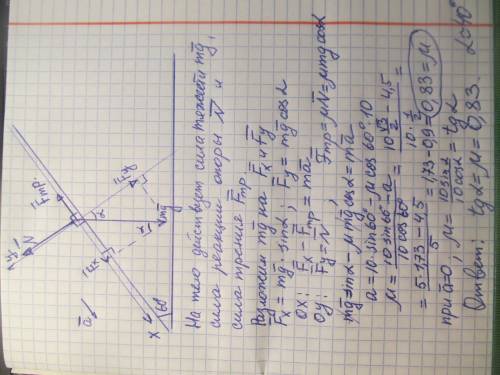 y
N
Fтр.
a
Fx
Fy
α
α
mg
X
60°
На тело действует сила тяжести mg,
сила реакции опоры N и
сила трения Fтр.
Разложим mg на Fx и Fy
Fx = mg · sinα, Fy = mg cosα
ox: Fx - Fтр = ma
oy: Fy = N, Fтр = μN = μmg cosα
mg sinα - μmg cosα = ma
a = 10 · sin 60° - μ cos 60° · 10
μ = (10 sin 60° - a) / (10 cos 60°) = (10 √3/2 - 4,5) / (10 · 1/2) =
= (5 · 1,73 - 4,5) / 5 = 1,73 - 0,9 = 0,83 = μ
при a=0, μ = 10 sinα / 10 cosα = tgα
Ответ: tgα = μ = 0,83. α≈40°